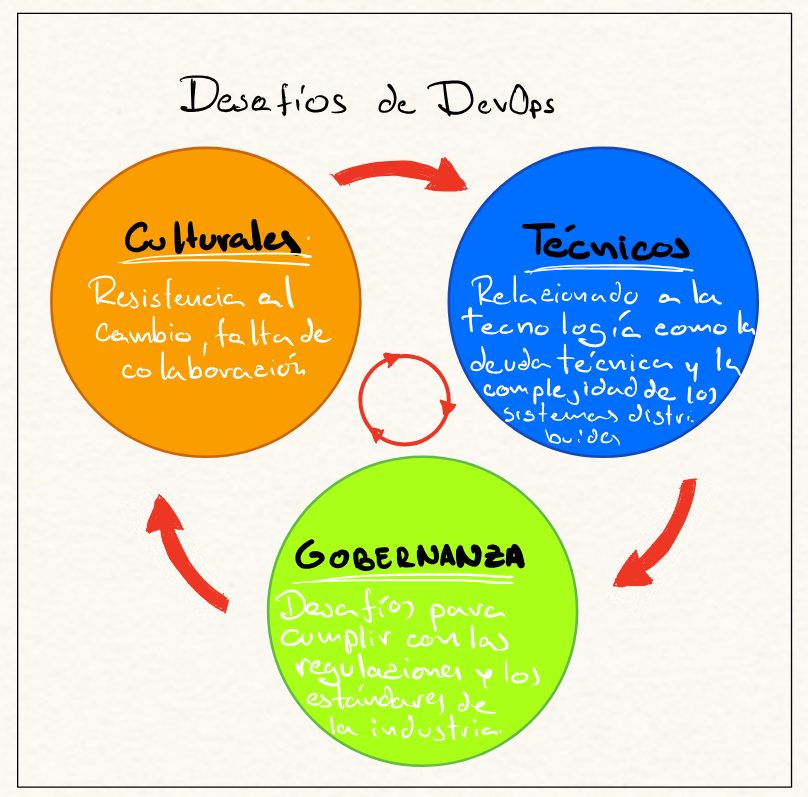 Desafíos de DevOps
Culturales
Resistencia al
cambio, falta de
colaboración
Técnicos
Relacionado a la
tecnología como la
deuda técnica y la
complejidad de los
sistemas distri
buidos
GOBERNANZA
Desafíos para
cumplir con las
regulaciones y los
estándares de
la industria.